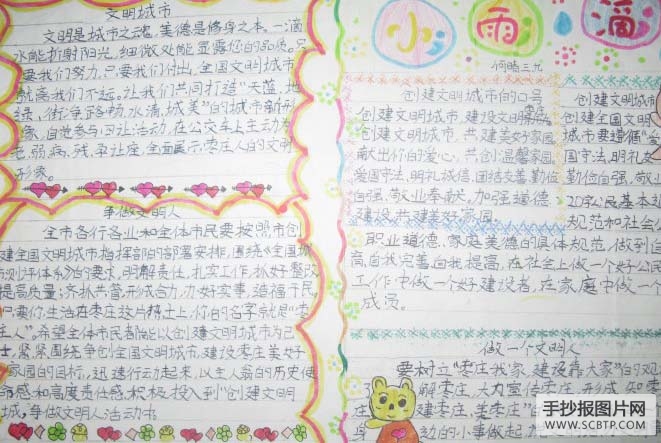 文明城市
文明是城市之魂,美德是修身之本。一滴
水能折射阳光,细微处能显露您的品质。只
要我们努力,只要我们付出,全国文明城市
就离我们不远。让我们共同打造"天蓝、地
绿、街净、路畅、水清、城美"的城市新形
象。自觉参与日让活动,在公交车上主动为
老、弱、病、残、孕让座,全面展示枣庄人的文明
形象。
争做文明人
全市各行各业和全体市民要按照市创
建全国文明城市指挥部的部署安排,围绕《全国城
的要求,明解责任,扎实工作,抓好整改
提高质量,齐抓共管,形成合力,办好实事,造福市民。
生活在枣庄这片精土上,你的名字就是"枣
庄人"。希望全体市民都能以创建文明城市为己
紧紧围绕争创全国文明城市,建设枣庄美好
家园的目标,迅速行动起来,以主人翁的历史使
命感和高度责任感,积极投入到"创建文明
城,争做文明人活动中
小雨滴
创建文明城市的口号
创建文明城市,建设文明
创建文明城市,共建美好家园
献出你的爱心,共创温馨家园
爱国守法,明礼诚信,团结友善,勤俭
自强,敬业奉献。加强道德
建设,共建美好家园。
创建文明城市
创建全国文明
城市要遵循"爱
国守法,明礼友
勤俭自强,敬业
20字公民基本道
规范和社会
职业道德、家庭美德的具体规范,做到自
高、自我完善、自我提高,在社会上做一个好公民
工作中做一个好建设者,在家庭中做一个
成员。
做一个文明人
要树立"枣庄我家,建设靠大家"的观
解枣庄、大力宣传枣庄,形成知枣
庄 建枣庄、美枣庄"
身 动的小事做起
手抄报图片网
WWW.SCBTP.COM